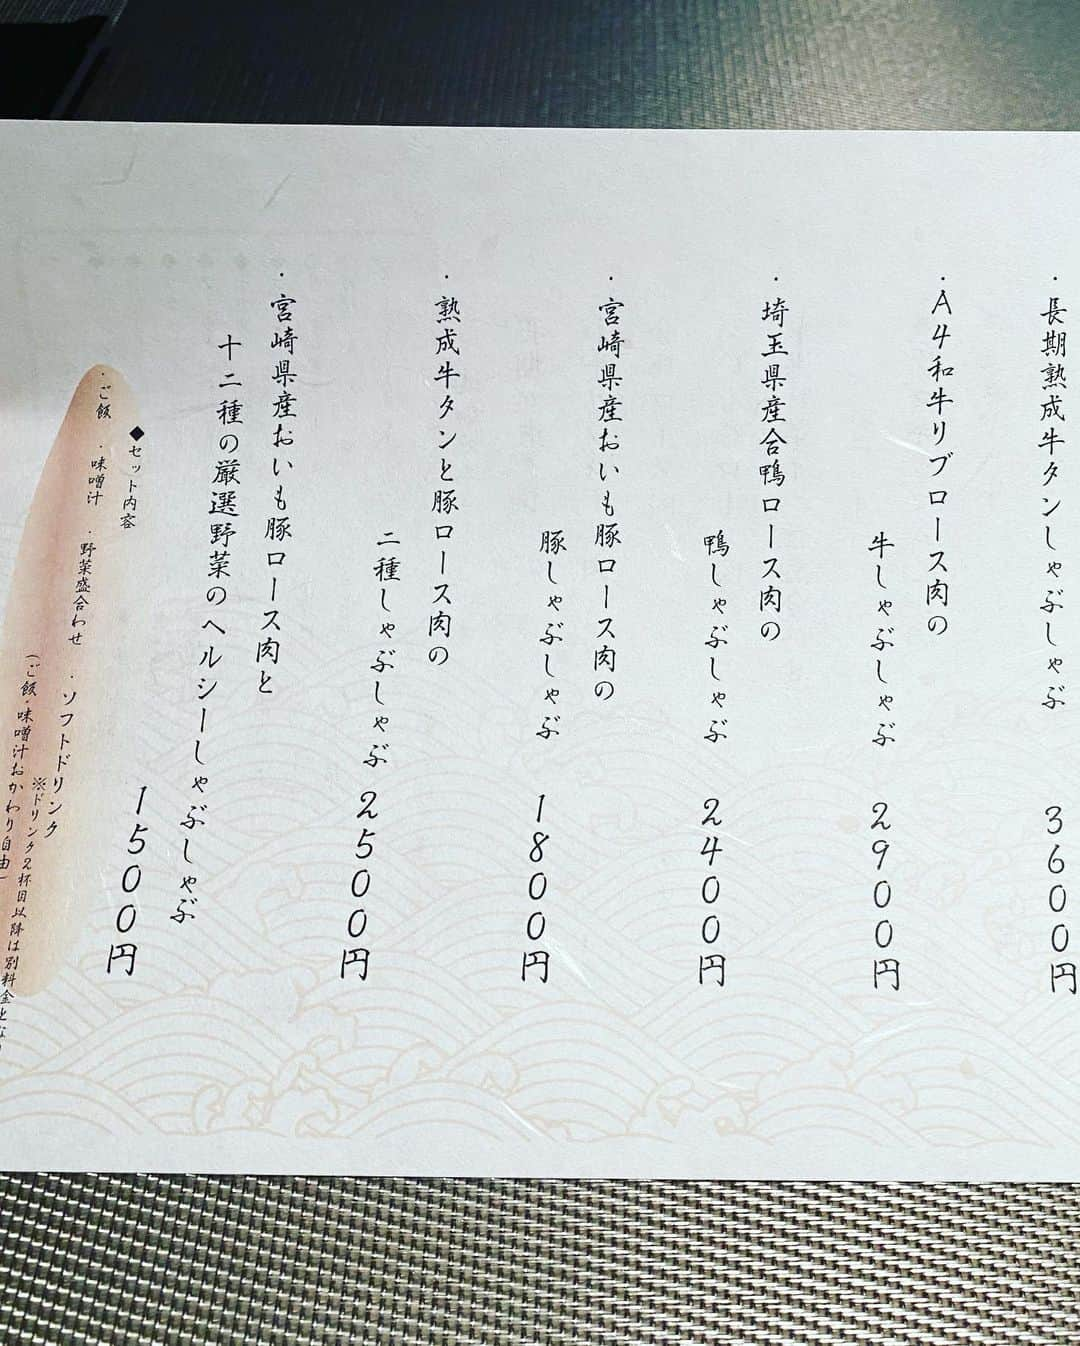 ・長期熟成牛タンしゃぶしゃぶ
3600円
・A4和牛リブロース肉の
牛しゃぶしゃぶ
2900円
・埼玉県産合鴨ロース肉の
鴨しゃぶしゃぶ
2400円
・宮崎県産おいも豚ロース肉の
豚しゃぶしゃぶ
1800円
・熟成牛タンと豚ロース肉の
二種しゃぶしゃぶ
2500円
・宮崎県産おいも豚ロース肉と
十二種の厳選野菜のヘルシーしゃぶしゃぶ
1500円
◆セット内容
・ご飯 ・味噌汁 ・野菜盛合わせ ・ソフトドリンク
※ドリンク2杯目以降は別料金とな
(ご飯・味噌汁おかわり自由)